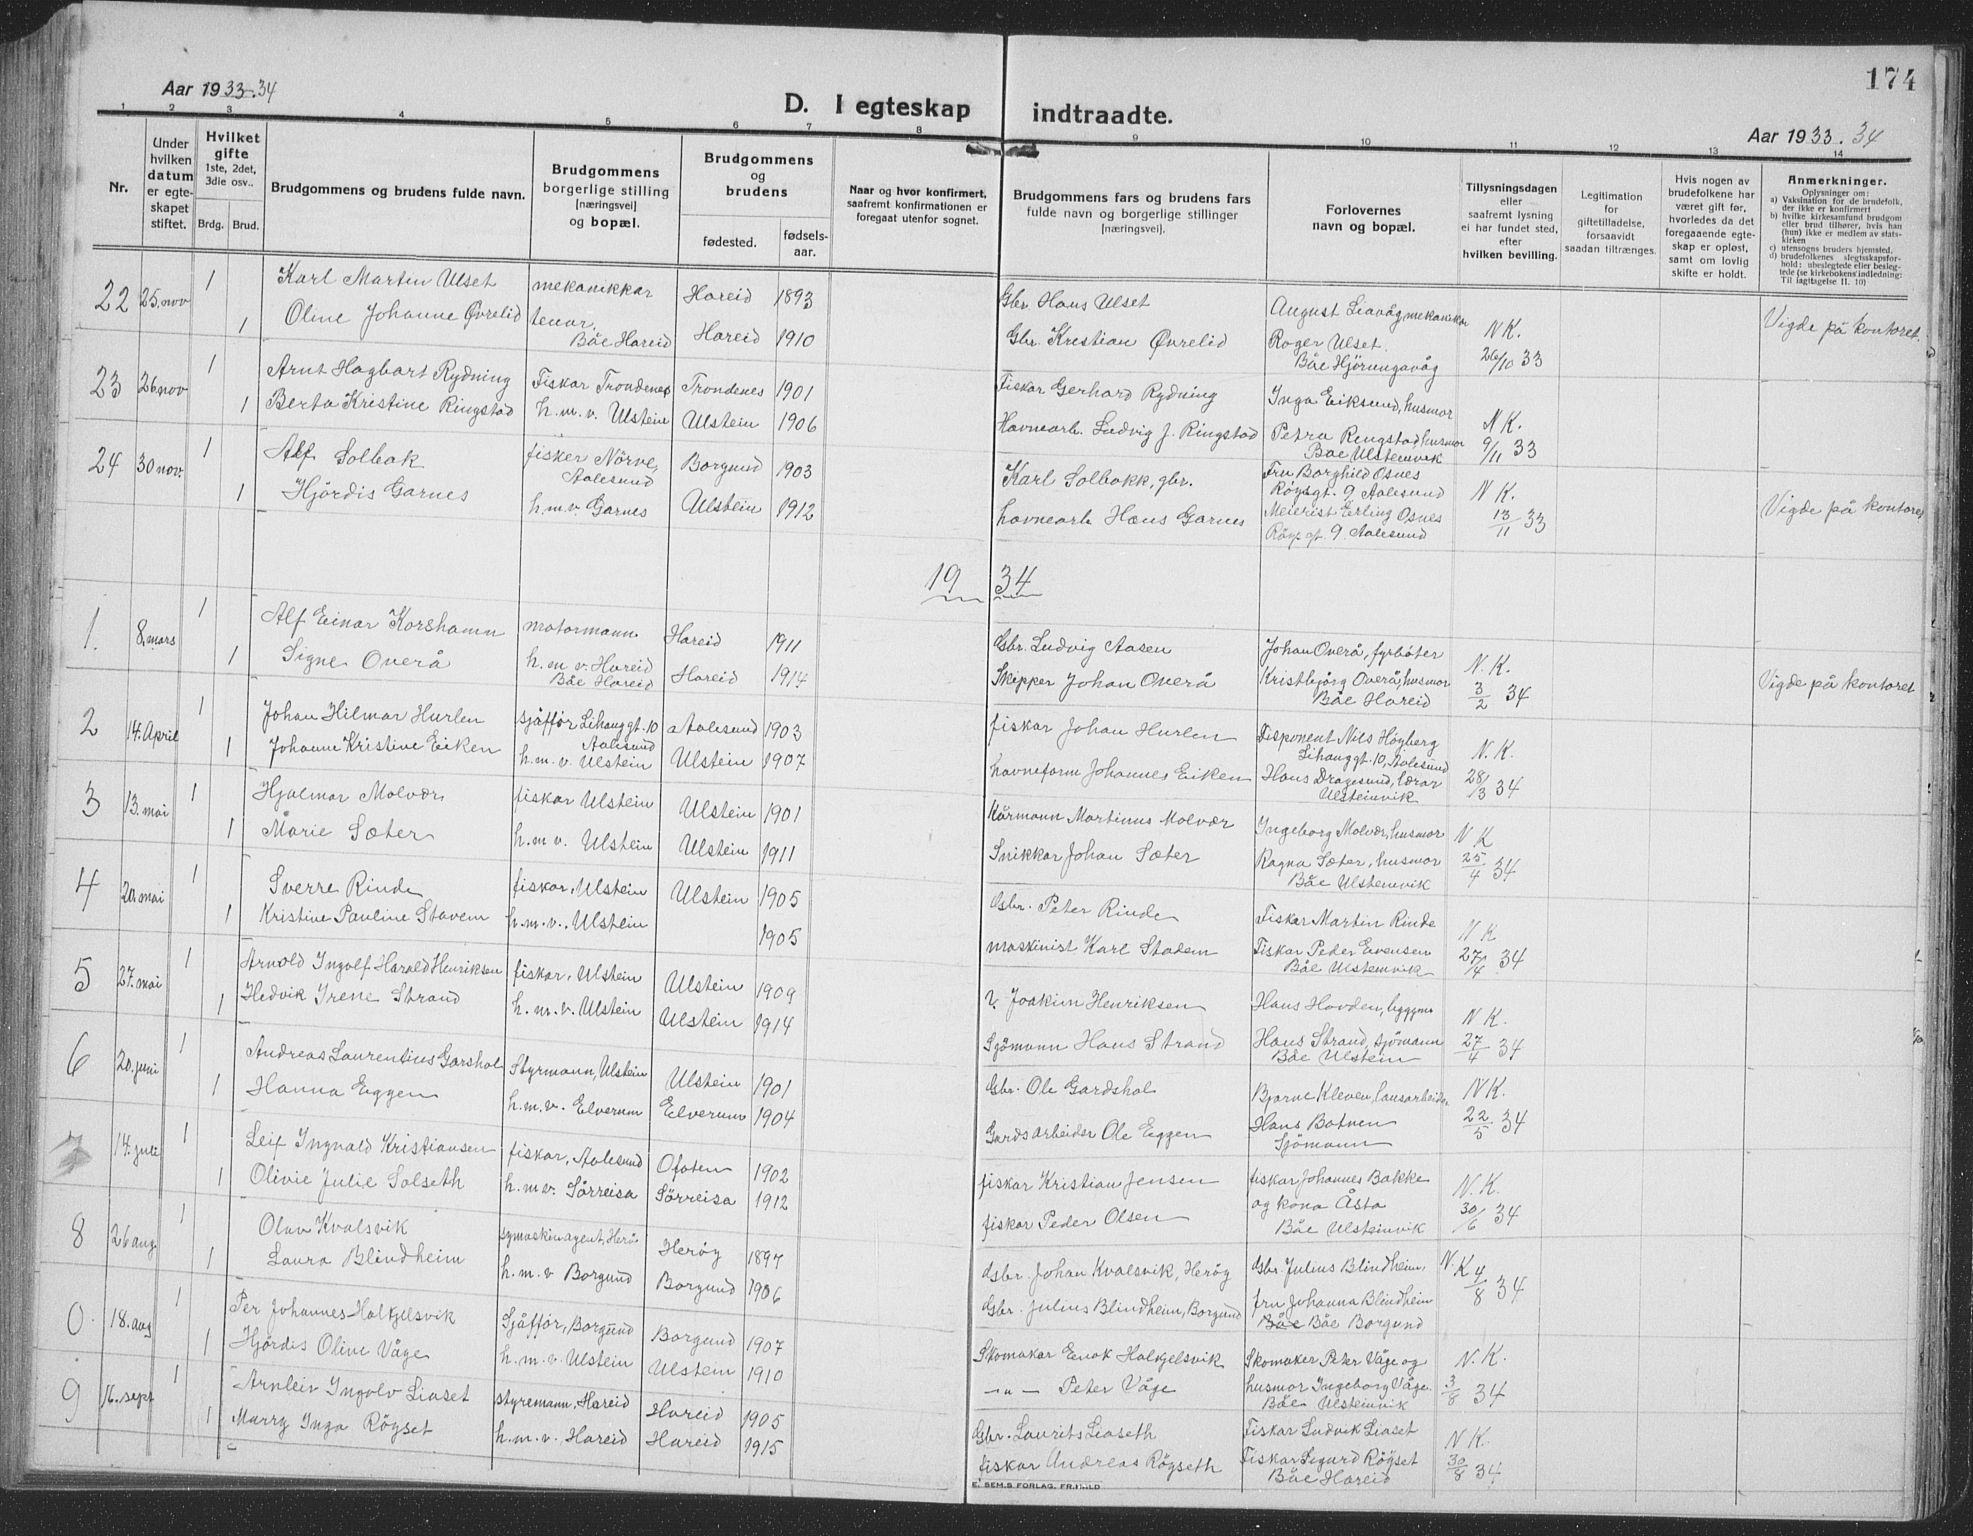 174
Aar 1933-34
D. I egteskap indtraadte.
Aar 1933.34
1 2 3 4 5 6 7 8 9 10 11 12 13 14
Nr.
Under hvilken datum er egteskapet stiftet.
Hvilket gifte 1ste, 2det, 3die osv..
Brdg. Brud.
Brudgommens og brudens fulde navn.
Brudgommens borgerlige stilling [næringsvei] og bopæl.
Brudgommens og brudens
fødested. fødselsaar.
Naar og hvor konfirmert, saafremt konfirmationen er foregaat utenfor sognet.
Brudgommens fars og brudens fars fulde navn og borgerlige stillinger [næringsvei].
Forlovernes navn og bopæl.
Tillysningsdagen eller saafremt lysning ei har fundet sted, efter hvilken bevilling.
Legitimation for giftetilladelse, forsaavidt saadan tiltrænges.
Hvis nogen av brudefolkene har været gift før, hvorledes da det foregaaende egteskap er opløst, samt om lovlig skifte er holdt.
Anmerkninger.
Oplysninger om:
a) Vaksination for de brudefolk, der ikke er konfirmert
b) hvilke kirkesamfund brudgom eller brud tilhører, hvis han (hun) ikke er medlem av statskirken
c) utensogns bruders hjemsted,
d) brudefolkenes slegtsskapsforhold: ubeslegtede eller beslegtede (se kirkebokens indledning: Til iagttagelse II. 10)
22 25. nov 1 Karl Martin Ulset mekanikkar Hareid 1893 Gbr. Hans Ulset August Liavåg mekaniker N K. Vigde på kontoret.
1 Oline Johanne Øvrelid tenar. Båe Hareid Hareid 1910 Gbr. Kristian Øvrelid Roger Ulset. Båe Hjörungavåg 26/10 33
23 26 nov 1 Arnt Hagbart Rydning Fiskar Trondenes Trondenes 1901 Fiskar Gerhard Rydning Inga Eiksund, husmor N K.
1 Berta Kristine Ringstad h. m. v. Ulstein Ulstein 1906 Havnearb. Ludvig J. Ringstad Petra Ringstad husmor Båe Ulsteinvik 9/11 33
24 30 nov. 1 Alf Solbak fisker Nörve, Aalesund Borgund 1903 Karl Solbakk, gbr. Fru Borghild Osnes Röysgt. 9 Aalesund N K. Vigde på kontoret
1 Hjördis Garnes h.m.v. Garnes Ulstein 1912 havnearb. Hans Garnes Meierist Erling Osnes Röysgt. 9. Aalesund 13/11 33
19 34
1. 8. mars 1 Alf Einar Korshamn motormann Hareid 1911 Gbr. Ludvig Aasen Johan Overå, fyrbøter N. K. Vigde på kontoret
1 Signe Overå h. m v. Hareid Båe Hareid Hareid 1914 Skipper Johan Overå Kristbjörg Overå, husmor Båe Hareid 3/2 34
2 14. April 1 Johan Hilmar Hurlen sjåffør Lihauggt. 10 Aalesund Aalesund 1903 fiskar Johan Hurlen Disponent Nils Höyberg Lihauggt. 10, Aalesund N. K.
1 Johanne Kristine Eiken h. m. v. Ulstein Ulstein 1907 havneform Johannes Eiken Hans Dragesund, lærar Ulsteinvik 28/3 34
3 13. mai 1 Hjalmar Molvær fiskar Ulstein Ulstein 1901 Kårmann Martinus Molvær Ingeborg Molvær, husmor N K
1 Marie Sæter h. m v. Ulstein Ulstein 1911 Snikkar Johan Sæter Ragna Sæter, husmor Båe Ulsteinvik 25/4 34
4 20 mai 1 Sverre Rinde fiskar, Ulstein Ulstein 1905 Gbr. Peter Rinde Fiskar Martin Rinde N K
1 Kristine Pauline Stavem h. m. v., Ulstein 1905 maskinist Karl Stadem Fiskar Peder Evensen Båe Ulsteinvik 27/4 34
5 27. mai 1 Arnold Ingolf Harald Henriksen fiskar, Ulstein Ulstein 1909 Joakim Henriksen Hans Hovden, N K.
1 Hedvik Irene Strand h. m. v. Ulstein Ulstein 1914 Sjömann Hans Strand Hans Strand, sjömann Båe Ulstein 27/4 34
6 20. juni 1 Andreas Laurentius Garshol Styrmann, Ulstein Ulstein 1901 Gbr. Ole Gardshol Bjarne Kleven, lausarbeider N K.
1 Hanna Eggen h. m. v. Elverum Elverum 1904 Gardsarbeider Ole Eggen Hans Botnen Sjömann 22/5 34
7 14. juli 1 Leif Ingvald Kristiansen fiskar, Aalesund Ofoten 1902 fiskar Kristian Jensen fiskar Johannes Bakke N. K.
1 Olivie Julie Solseth h. m. v. Sörreisa Sörreisa 1912 fiskar Peder Olsen og kona Åsta Båe Ulsteinvik 30/6 34
8 26 aug 1 Olav Kvalsvik symaskinagent, Herö Heröy 1897 Gbr. Johan Kvalsvik, Heröy Gbr. Julius Blindheim, N. K 4/8 34
1 Laura Blindheim h. m. v Borgund Borgund 1906 Gbr. Julius Blindheim, Borgund fru Johanna Blindheim Båe Båe Borgund
0 18. aug 1 Per Johannes Halkjelsvik Sjåffør, Borgund Borgund 1907 Skomakar Enok Halkjelsvik Skomaker Peter Våge og N. K.
1 Hjördis Oline Våge h. m. v. Ulstein Ulstein 1910 — „ — Peter Våge husmor Ingeborg Våge. Båe Ulsteinvik 3/8 34
9 16. sept 1 Arnleiv Ingolv Liaset styremann, Hareid Hareid 1905 Gbr. Laurits Liaseth Fiskar Ludvik Liaset N K.
1 Marry Inga Röyset h. m. v. Hareid Hareid 1915 fiskar Andreas Röyseth Fiskar Sigurd Röyset Båe Hareid 30/8 34
E. SEM.S FORLAG, FR.HALD